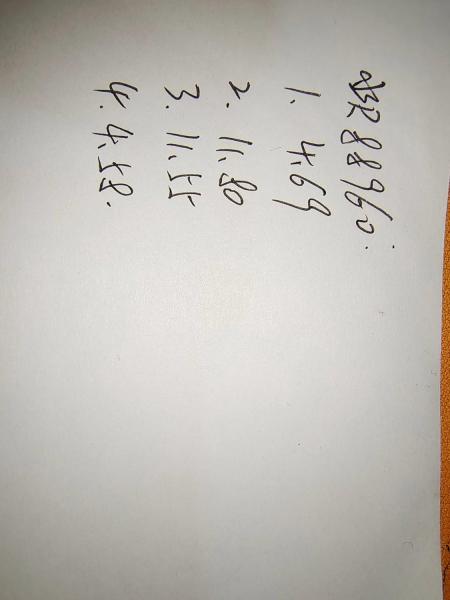 R88960:
1. 4.69
2. 11.80
3. 11.55
4. 4.58.